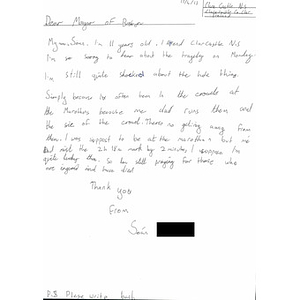 Clare Castle N.S
Dear Mayor of Boston
My name Sean. I'm 11 years old. I attend Clarecastle N.S
I'm so sorry to hear about the tragedy on Monday.
I'm still quite shocked about the hole thing.
Simply because I'm often been in the crowds at
the Marathons because me dad runs them and
the size of the crowd. Theres no getting away from
them. I was suppost to be at the marathon but me
Dad the 2h 18m mark by 2 minutes I suppose I'm
quite lucky tho. So I'm still praying for those who
are injured and have died
Thank you
From
P.S Please write back